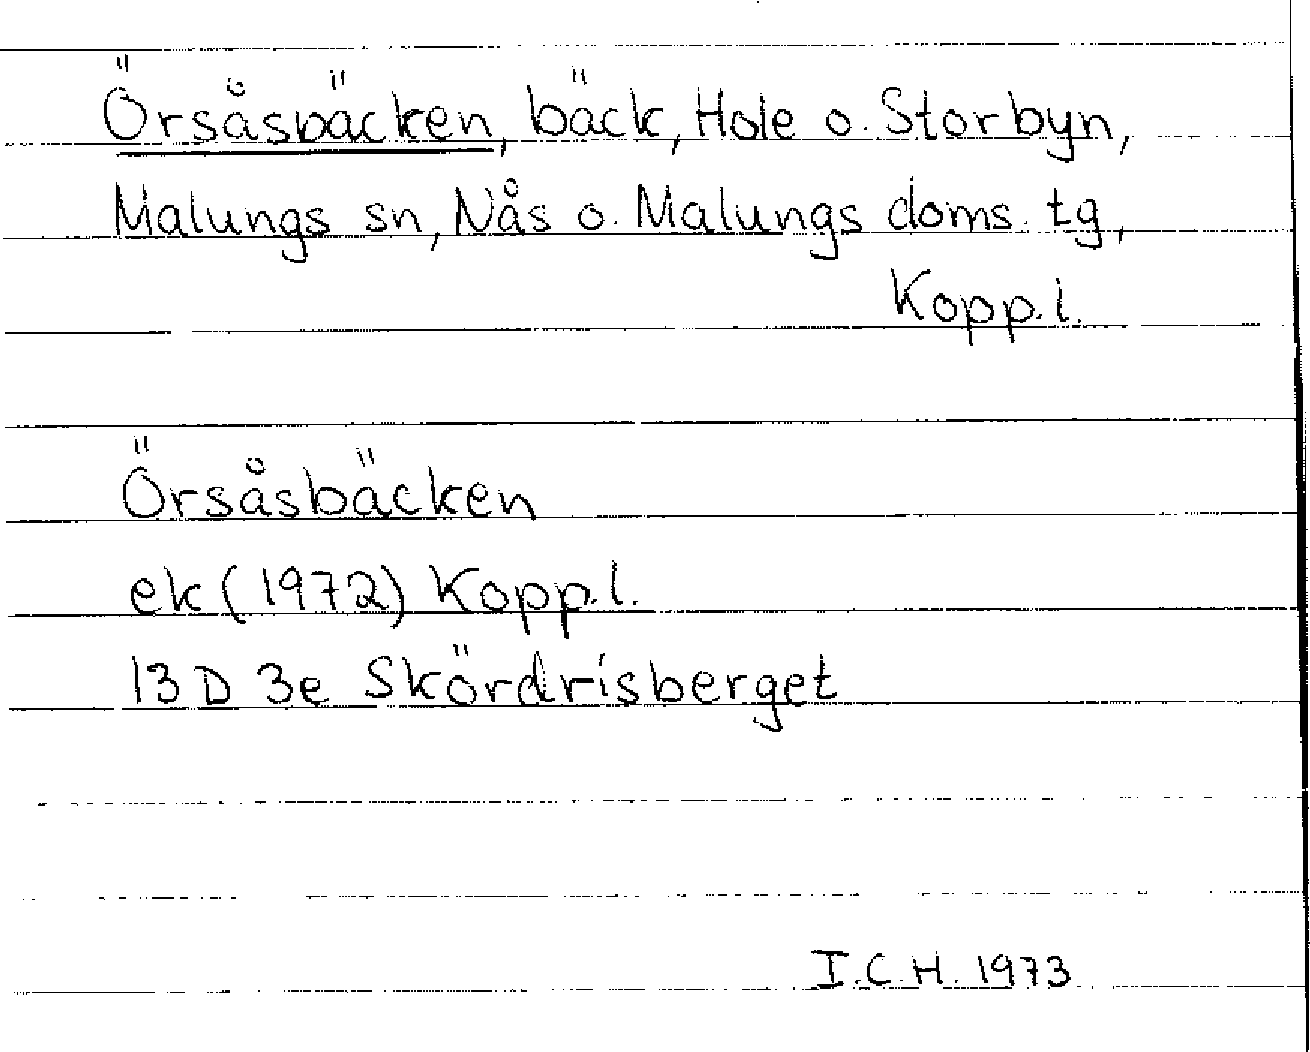 Örsåsbäcken, bäck, Hole o. Storbyn,
Malungs sn, Nås o. Malungs doms. tg,
Kopp. l.
Örsåsbäcken
ek (1972) Kopp. l.
13 D 3e Skördrisberget
I. C. H. 1973